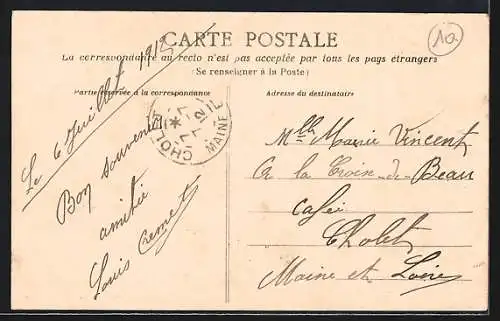 CARTE POSTALE
La correspondance au recto n'est pas acceptée par tous les pays étrangers
(Se renseigner à la Poste)
Partie réservée à la correspondance
Adresse du destinataire
Le 6 Juillet 1912
Bon souvenir
amitié
Louis Cremet
CHOLET
MAINE
Mlle Marie Vincent
a la Croix-de-Beau
Cholet
Maine et Loire
1a